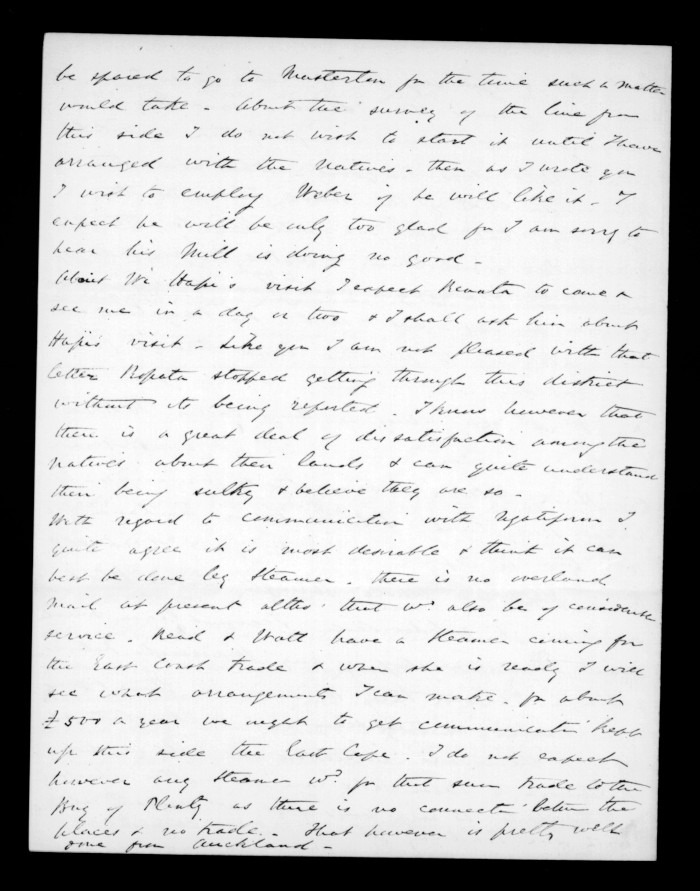 be spared to go to Masterton for the time such a matter
would take - About the survey of the line from
this side I do not wish to start it until I have
arranged with the Natives - then as I wrote you
I wish to employ Weber if he will like it - I
expect he will be only too glad for I am sorry to
hear his Mill is doing no good -
About Wi Hapi's visit I expect Renata to come &
see me in a day or two & I shall ask him about
Hapi's visit - Like you I am not pleased with that
letter Ropata stopped getting through this district
without its being reported. I know however that
there is a great deal of dissatisfaction among the
Natives about their lands & can quite understand
their being sulky & believe they are so -
With regard to communication with Ngatiporou I
quite agree it is most desirable & think it can
best be done by Steamer. there is no overland
mail at present altho' that wd. also be of considerable
service. Read & Watt have a Steamer coming for
the East Coast trade & when she is ready I will
see what arrangements I can make. for about
£500 a year we ought to get communication kept
up this side the East Cape. I do not expect
however any Steamer wd. for that sum trade to the
Bay of Plenty as there is no connectn between the
places & no trade. - That however is pretty well
done from Auckland -